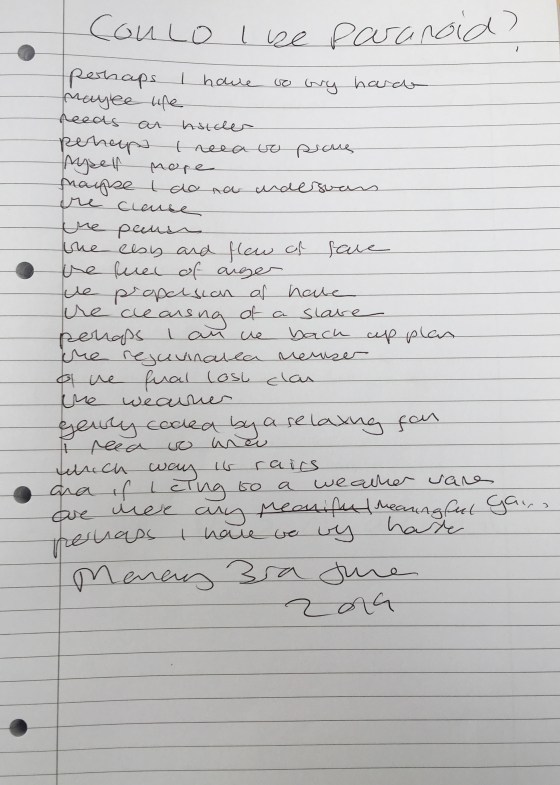 Could I be paranoid?
perhaps I have to try harder
maybe life
needs an insider
perhaps I need to prove
myself more
maybe I do not understand
the clause
the pause
the ebb and flow of fate
the fuel of anger
the propulsion of hate
the cleansing of a slave
perhaps I am the back up plan
the rejuvinated member
of the final lost clan
the weather
gently cooled by a relaxing fan
I need to know
which way it rains
and if I cling to a weather vane
are there any meaningful
perhaps I have to try harder
Monday 3rd June
2019